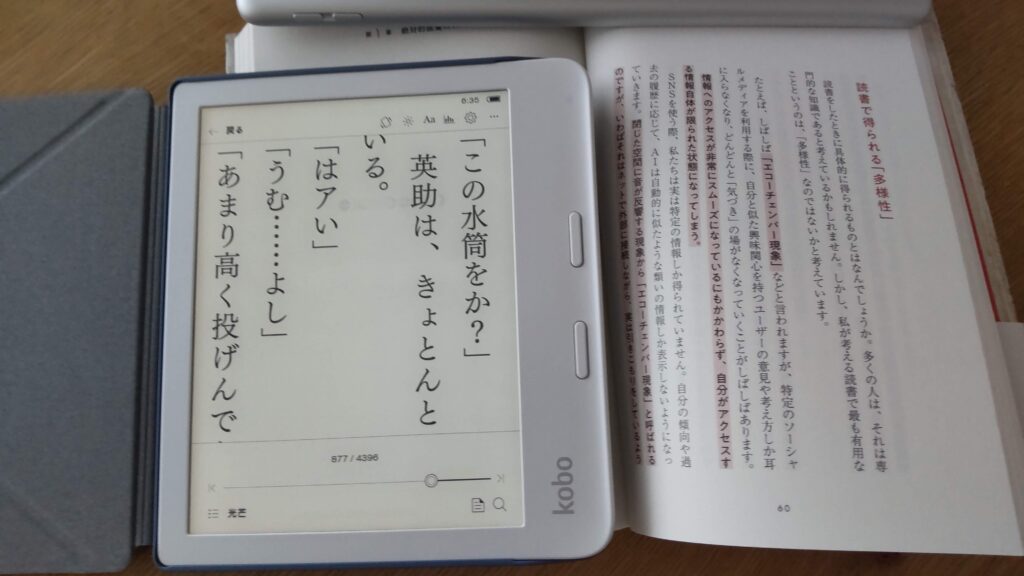 6:35
戻る
Aa
「この水筒をか？」
英助は、きょとんと
いる。
「はアい」
「うむ……よし」
「あまり高く投げんで
877 / 4396
光芒
kobo
第1章
読書で得られる「多様性」
読書をしたときに具体的に得られるものとはなんでしょうか。多くの人は、それは専
門的な知識であると考えているかもしれません。しかし、私が考える読書で最も有用な
ことというのは、「多様性」なのではないかと考えています。
たとえば、しばしば「エコーチェンバー現象」などと言われますが、特定のソーシャ
ルメディアを利用する際に、自分と似た興味関心を持つユーザーの意見や考え方しか耳
に入らなくなり、どんどんと「気づき」の場がなくなっていくことがしばしばあります。
情報へのアクセスが非常にスムーズになっているにもかかわらず、自分がアクセスす
る情報自体が限られた状態になってしまう。
SNSを使う際、私たちは実は特定の情報しか得られていません。自分の傾向や過
去の履歴に応じて、AIは自動的に似たような類いの情報しか表示しないようになっ
ていきます。閉じた空間に音が反響する現象から「エコーチェンバー現象」と呼ばれる
のですが、いわばそれはネットで外部に接続しながら、実は引きこもりをしているよう
60